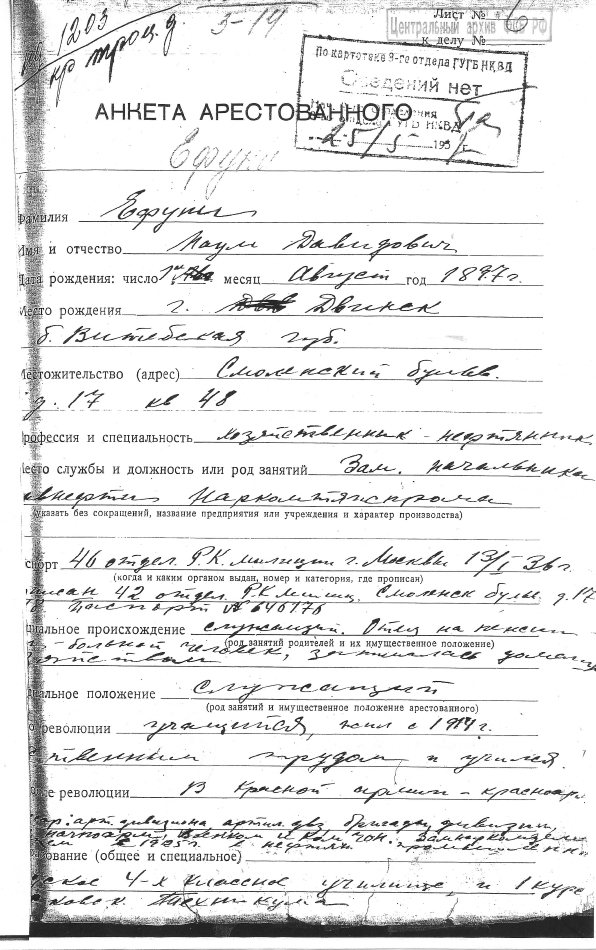 Лист № 6
к делу №
Центральный архив ФСБ РФ
№ 1203
кр троц. д
3-14
По картотеке 8-го отдела ГУГБ НКВД
Сведений нет
ГУГБ НКВД
25/5 193
АНКЕТА АРЕСТОВАННОГО
Ефуни
Фамилия Ефуни
Имя и отчество Наум Давидович
Дата рождения: число месяц Август год 1897 г.
Место рождения г. Двинск
б. Витебская губ.
Местожительство (адрес) Смоленский бульв.
д. 17 кв 48
Профессия и специальность хозяйственник - нефтянник
Место службы и должность или род занятий Зам. начальника
авнефти Наркомтяжпрома
(указать без сокращений, название предприятия или учреждения и характер производства)
спорт 46 отдел. Р.К. милиции г. Москвы 13/I 36 г.
(когда и каким органом выдан, номер и категория, где прописан)
писан 42 отдел. Р.К. Милиц. Смоленск буль. д. 17
паспорт № 640176
циальное происхождение служащий. Отец на пенсии
(род занятий родителей и их имущественное положение)
больной человек, занималась домаш
хозяйством
циальное положение служащий
(род занятий и имущественное положение арестованного)
о революции учащийся, жил с 1914 г.
ственным трудом и учился
сле революции В Красной армии - красноарм.
арт. дивизиона артил. див бригады, дивизии,
1925 г. в нефтян промышленн
разование (общее и специальное)
дское 4-х классное училище, и 1 курс
сковск. Техникума